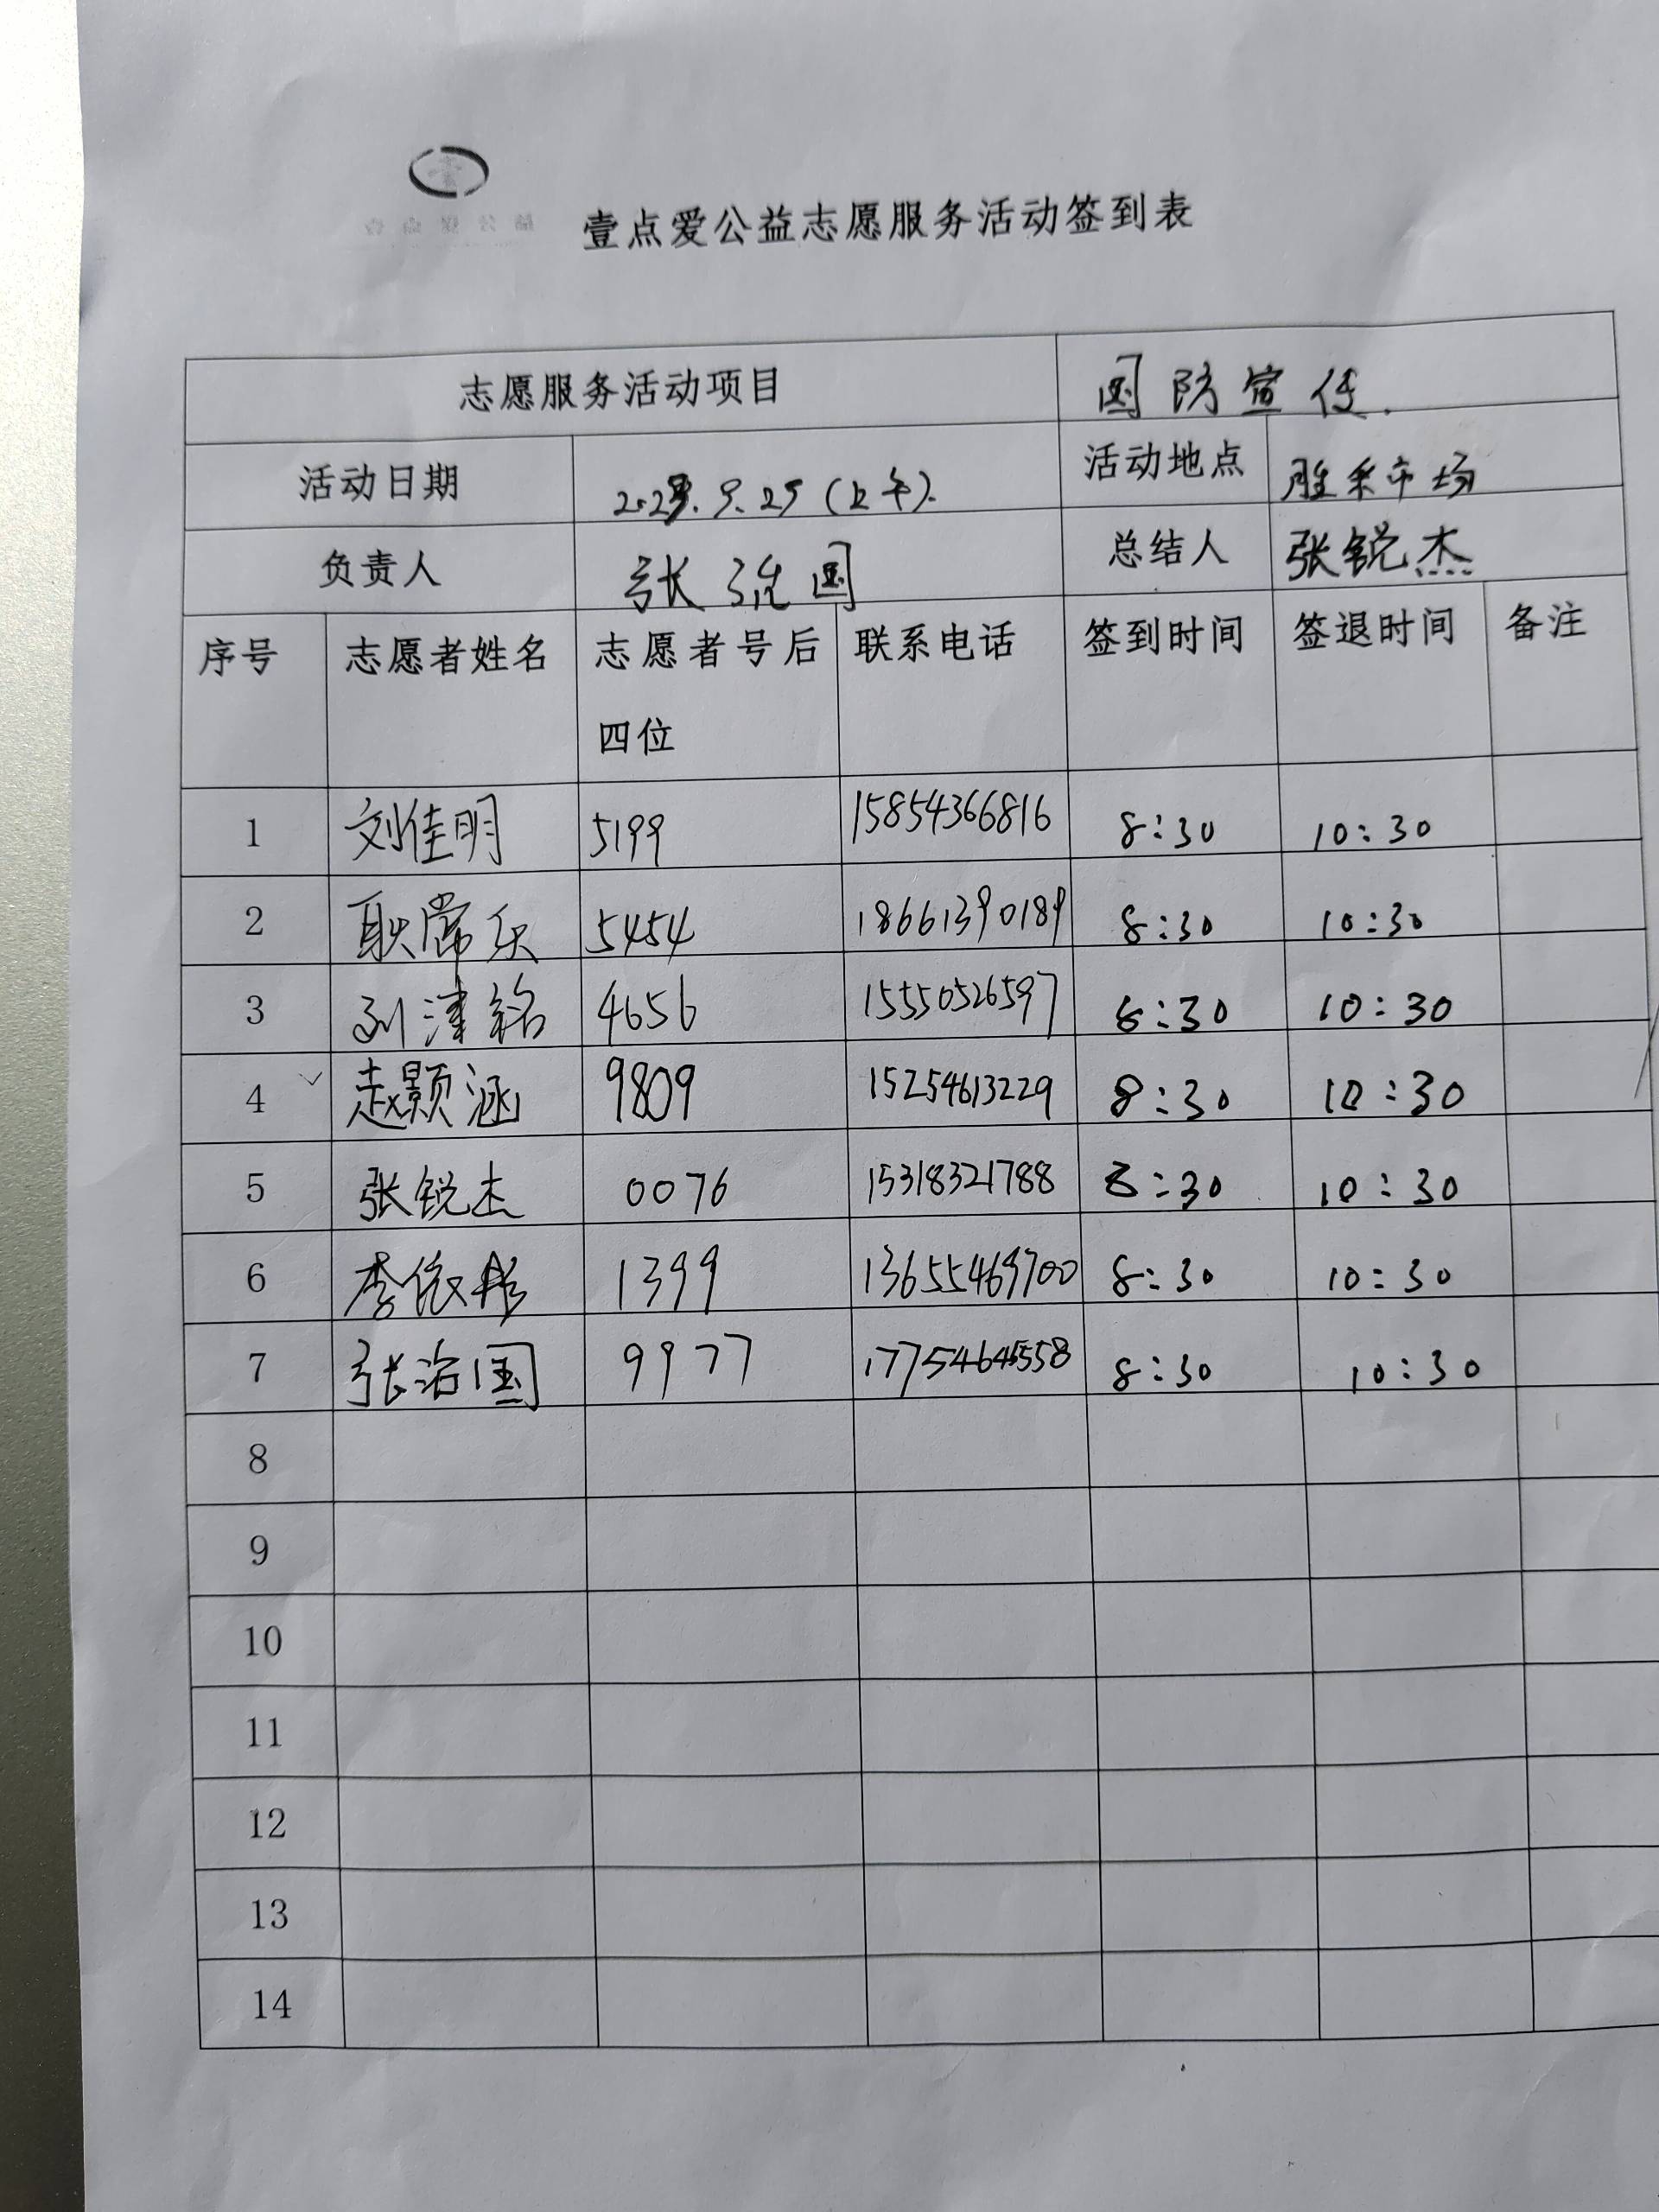 壹点爱公益志愿服务活动签到表
志愿服务活动项目 国防宣传.
活动日期 9.25(上午). 活动地点 胜采市场
负责人 张治国 总结人 张锐杰
序号 志愿者姓名 志愿者号后四位 联系电话 签到时间 签退时间 备注
1 刘佳明 5199 15854366816 8:30 10:30
2 耿常乐 5454 18661390189 8:30 10:30
3 刘津铭 4656 15550526597 8:30 10:30
4 赵颢涵 9809 15254613229 8:30 10:30
5 张锐杰 0076 15318321788 8:30 10:30
6 李依彤 1399 13655469700 8:30 10:30
7 张治国 9977 8:30 10:30
8
9
10
11
12
13
14